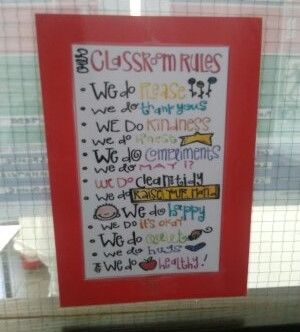 CLASSROOM RULES
We do PLEASE
we do thank yous
WE DO KINDNESS
we do
We do COMPLIMENTS
we do MAY I?
WE DO clean & tidy
we do RAISE YOUR HAND
We do happy
WE DO it's okay
We do quiet
we do hugs
We do healthy!